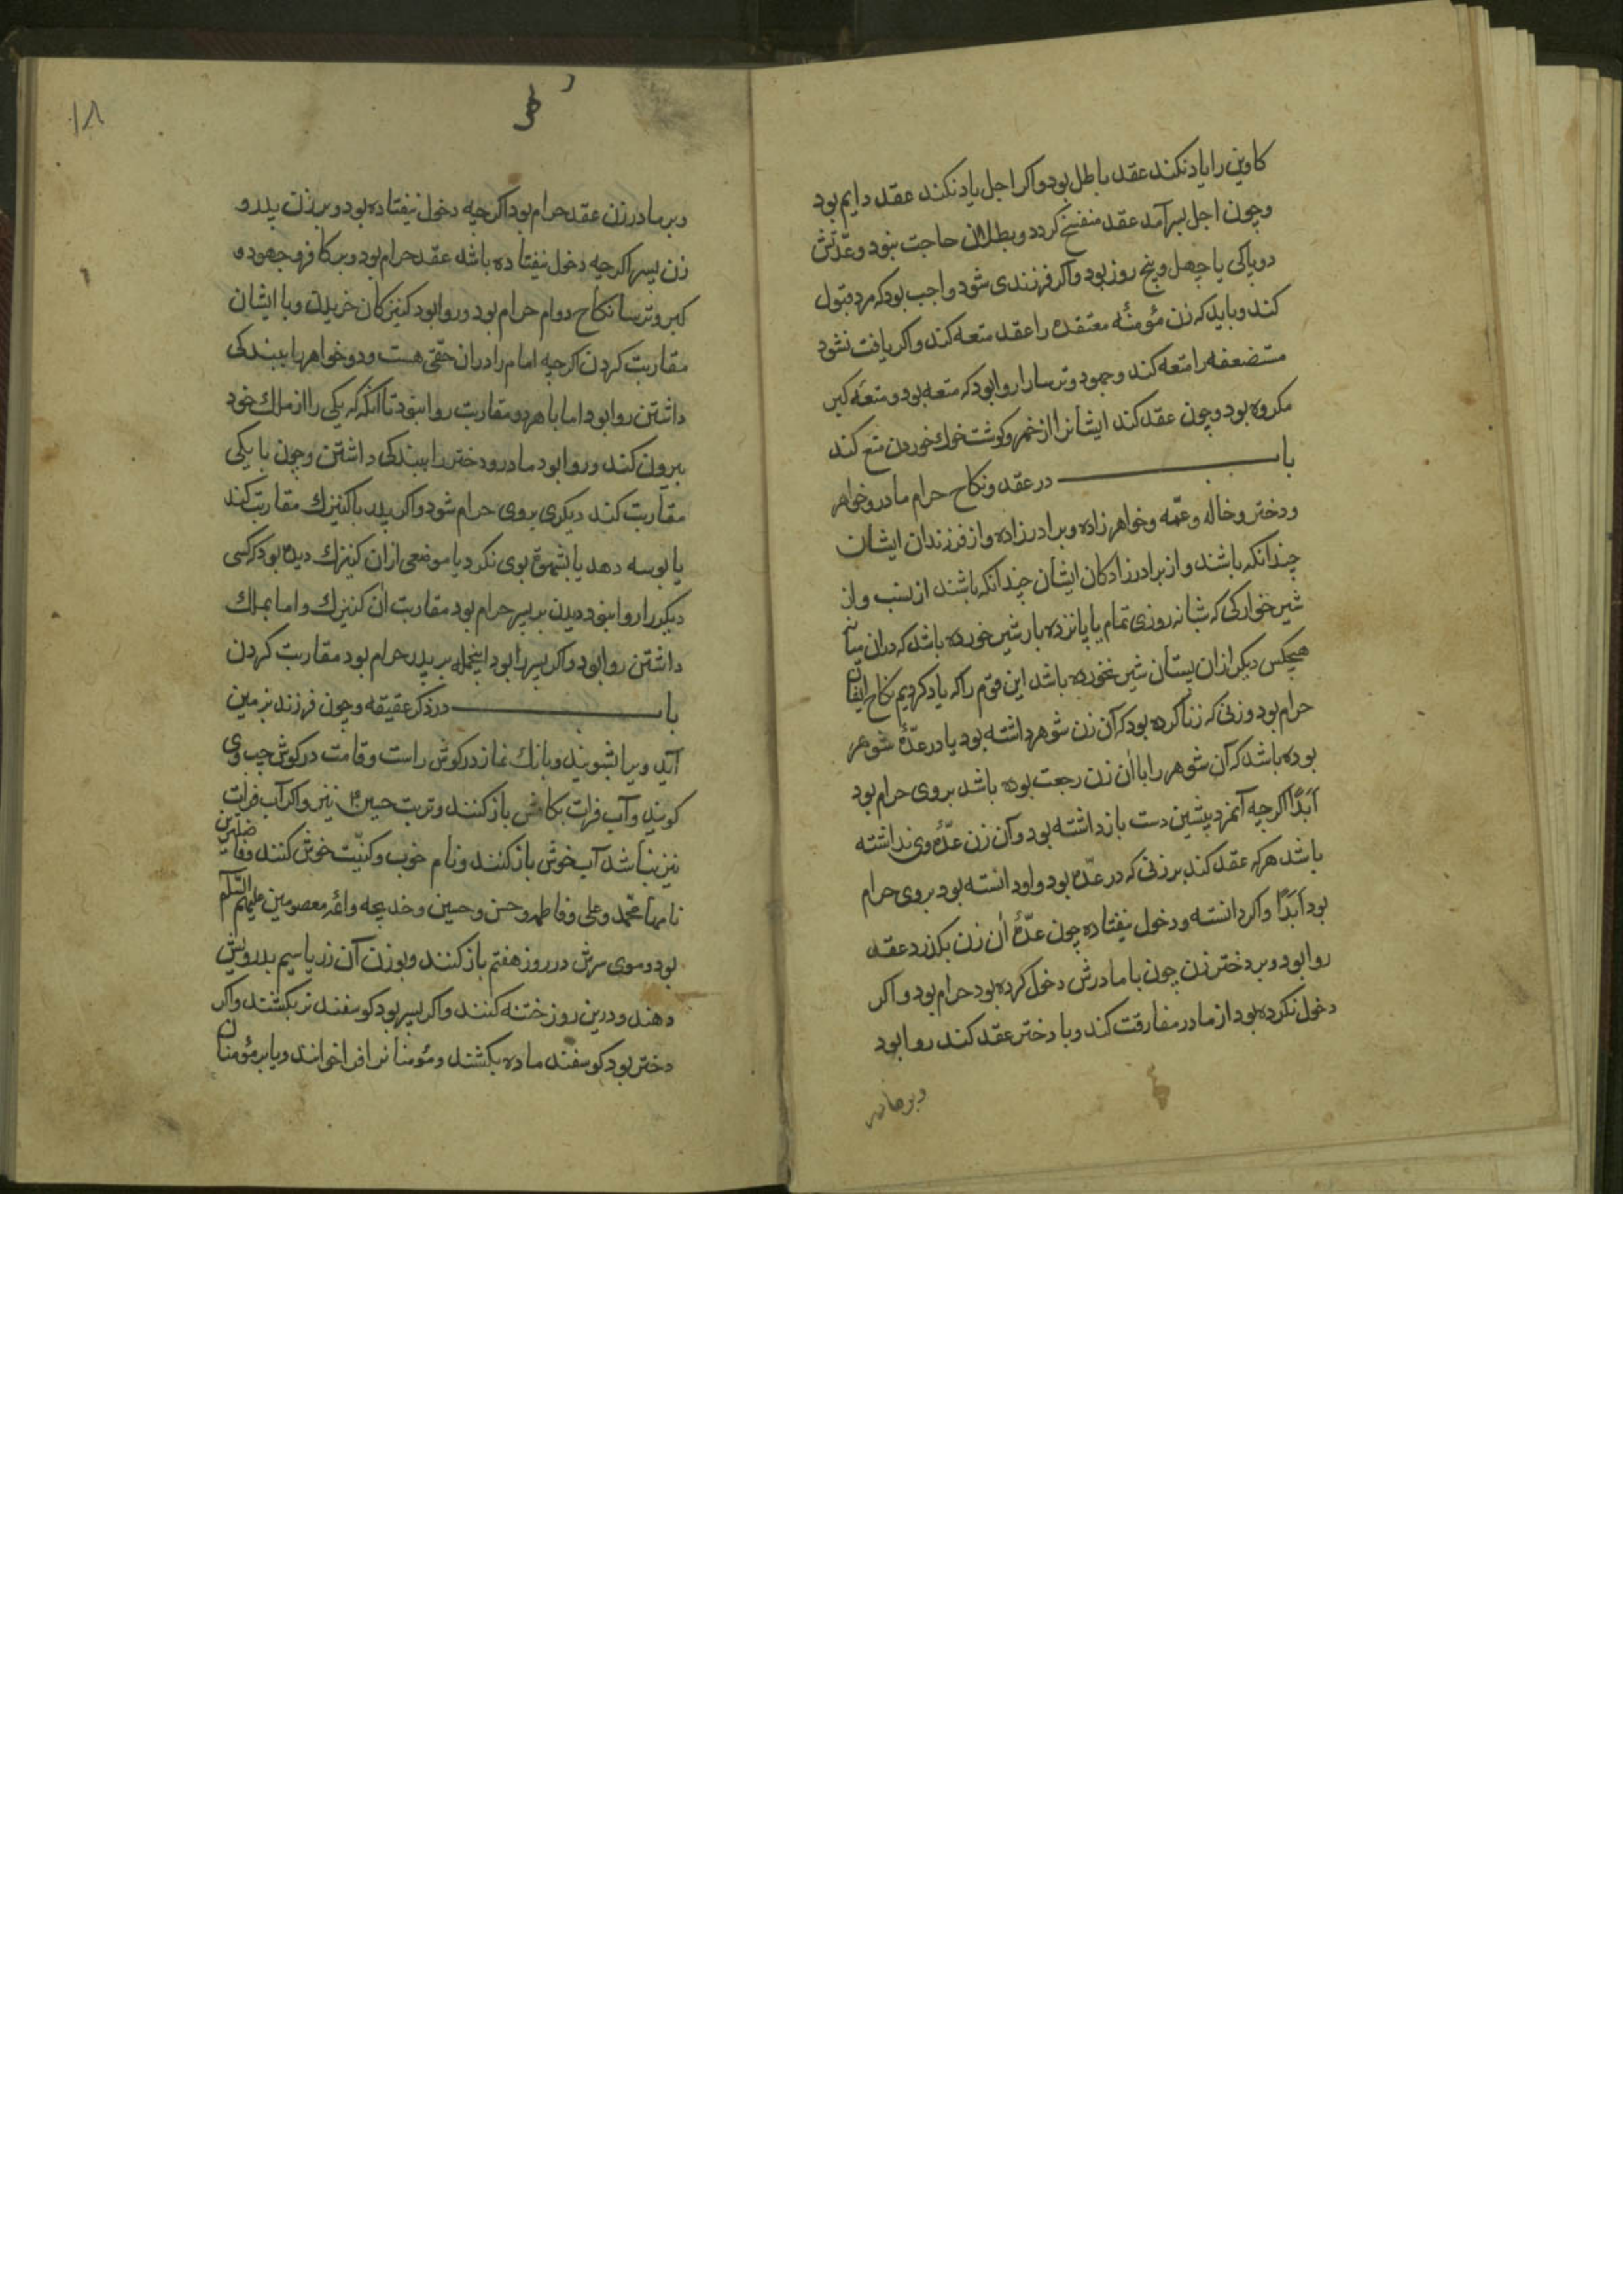 کاوین را یاد نکند عقد باطل بود و اکر اجل یاد نکند عقد دایم بود
و چون اجل بسر آمد عقد منفسخ کردد و بطلاق حاجت نبود و عدّتش
دو پاکی یا چهل و پنج روز بود و اکر فرزندی شود واجب بود که مرد قبول
کند و باید که زن مؤمنهٔ معتقده را عقد متعه کند و اکر یافت نشود
مستضعفه را متعه کند و جهود و ترسا را روا بود که متعه بود و متعهٔ کبر
مکروه بود و چون عقد کند ایشانرا از خمر و کوشت خوك خوردن منع کند
باب در عقد و نکاح حرام مادر و خواهر
و دختر و خاله و عمّه و خواهرزاده و برادرزاده و از فرزندان ایشان
چندانکه باشند و از برادرزادکان ایشان چندانکه باشند از نسب و از
شیرخوارکی که شبانه روزی تمام یا پانزده بار شیر خورده باشد که در ان میانه
هیچکس دیکر از ان پستان شیر نخورده باشد این قوم را که یاد کردیم نکاح ایشان
حرام بود و زنی که زنا کرده بود که آن زن شوهر داشته بود یا در عدّهٔ شوهر
بوده باشد که آن شوهر را با ان زن رجعت بوده باشد بر وی حرام بود
ابدًا اکرچه آنمرد پیشین دست باز داشته بود و آن زن عدّهٔ وی نداشته
باشد هرکه عقد کند بر زنی که در عدّه بود و او دانسته بود بر وی حرام
بود ابدًا و اکر دانسته و دخول نیفتاده چون عدّهٔ ان زن بکذرد عقد
روا بود و بر دختر زن چون با مادرش دخول کرده بود حرام بود و اکر
دخول نکرده بود از مادر مفارقت کند و با دختر عقد کند روا بود
و بر مادر
۱۸
و بر مادر زن عقد حرام بود اکرچه دخول نیفتاده بود و بر زن پدر و
زن پسر اکرچه دخول نیفتاده باشد عقد حرام بود و بر کافر و جهود و
کبر و ترسا نکاح دوام حرام بود و روا بود کنیزکان خریدن و با ایشان
مقاربت کردن اکرچه امام را در ان حقّی هست و دو خواهر را ببندکی
داشتن روا بود اما با هر دو مقاربت روا نبود تا آنکه که یکی را از ملك خود
بیرون کند و روا بود مادر و دختر را ببندکی داشتن و چون با یکی
مقاربت کند دیکری بر وی حرام شود و اکر پدر با کنیزك مقاربت کند
یا بوسه دهد یا بشهوة بوی نکرد یا موضعی از ان کنیزك دیده بود که کسی
دیکر را روا نبود دیدن بر پسر حرام بود مقاربت ان کنیزك و اما بملك
داشتن روا بود و اکر پسر را بود اینجمله بر پدر حرام بود مقاربت کردن
باب در ذکر عقیقه و چون فرزند بزمین
آید ویرا بشویند و بانك نماز در کوش راست و قامت در کوش چپ وی
کویند و آب فرات بکامش باز کنند و تربت حسین ع نیز و اکر آب فرات
نیز نباشد آب خوش باز کنند و نام خوب و کنیت خوش کنند و فاضلترین
نامها محمّد و علی و فاطمه و حسن و حسین و خدیجه و ائمه معصومین علیهم السّلم
بود و موی سرش در روز هفتم باز کنند و بوزن آن زر یا سیم بدرویش
دهند و درین روز ختنه کنند و اکر پسر بود کوسفند نر بکشند و اکر
دختر بود کوسفند ماده بکشند و مؤمنانرا فرا خوانند و یا بر مؤمنان